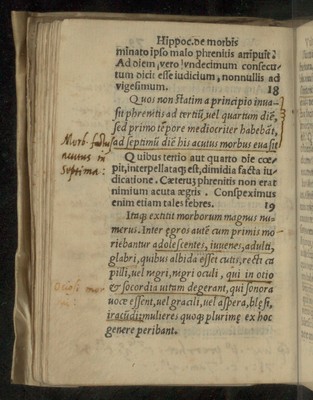 Hippoc. de morbis
minato ipso malo phrenitis arripuit?
Ad olem, vero / vndecimum consecu-
tum dicit esse iudicium, nonnullis ad
vigesimum. 18
Quos non statim a principio inua-
sit phrenitis ad tertiũ, uel quartum diẽ,
sed primo tẽpore mediocriter habebãt,
Morb. factus
acutus in
septima:
ad septimũ diẽ his acutus morbus euasit
Quibus tertio aut quarto die cœ-
pit, interpellataq; est, dimidia facta iu-
dicatione. Cæterus phrenitis non erat
nimium acuta ægris. Conspeximus
enim etiam tales febres. 19
Itaq; extitit morborum magnus nu-
merus. Inter egros autẽ cum primis mo-
riebantur adolescentes, iuuenes, adulti,
glabri, quibus albida esset cutis, recti ca
pilli, uel negri, negri oculi, qui in otio
& socordia uitam degerant, qui sonora
uoce essent, uel gracili, uel aspera, blesi,
iracũdi: mulieres quoq; plurimę ex hoc
genere peribant.